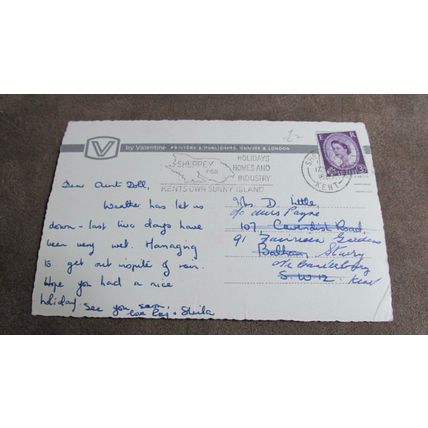 by Valentine PRINTERS & PUBLISHERS, DUNDEE & LONDON
SHEPPEY FOR
HOLIDAYS
HOMES AND
INDUSTRY
KENTS OWN SUNNY ISLAND
KENT
Dear Aunt Doll,
Weather has let us
down - last two days have
been very wet. Managing
to get out inspite of rain.
Hope you had a nice
holiday. See you soon,
love Ray + Sheila
Mrs. D. Little
c/o Payne
107 Cavendish Road
91 Gardens
Balham Sturry
Nr Canterbury
S.W.12. Kent